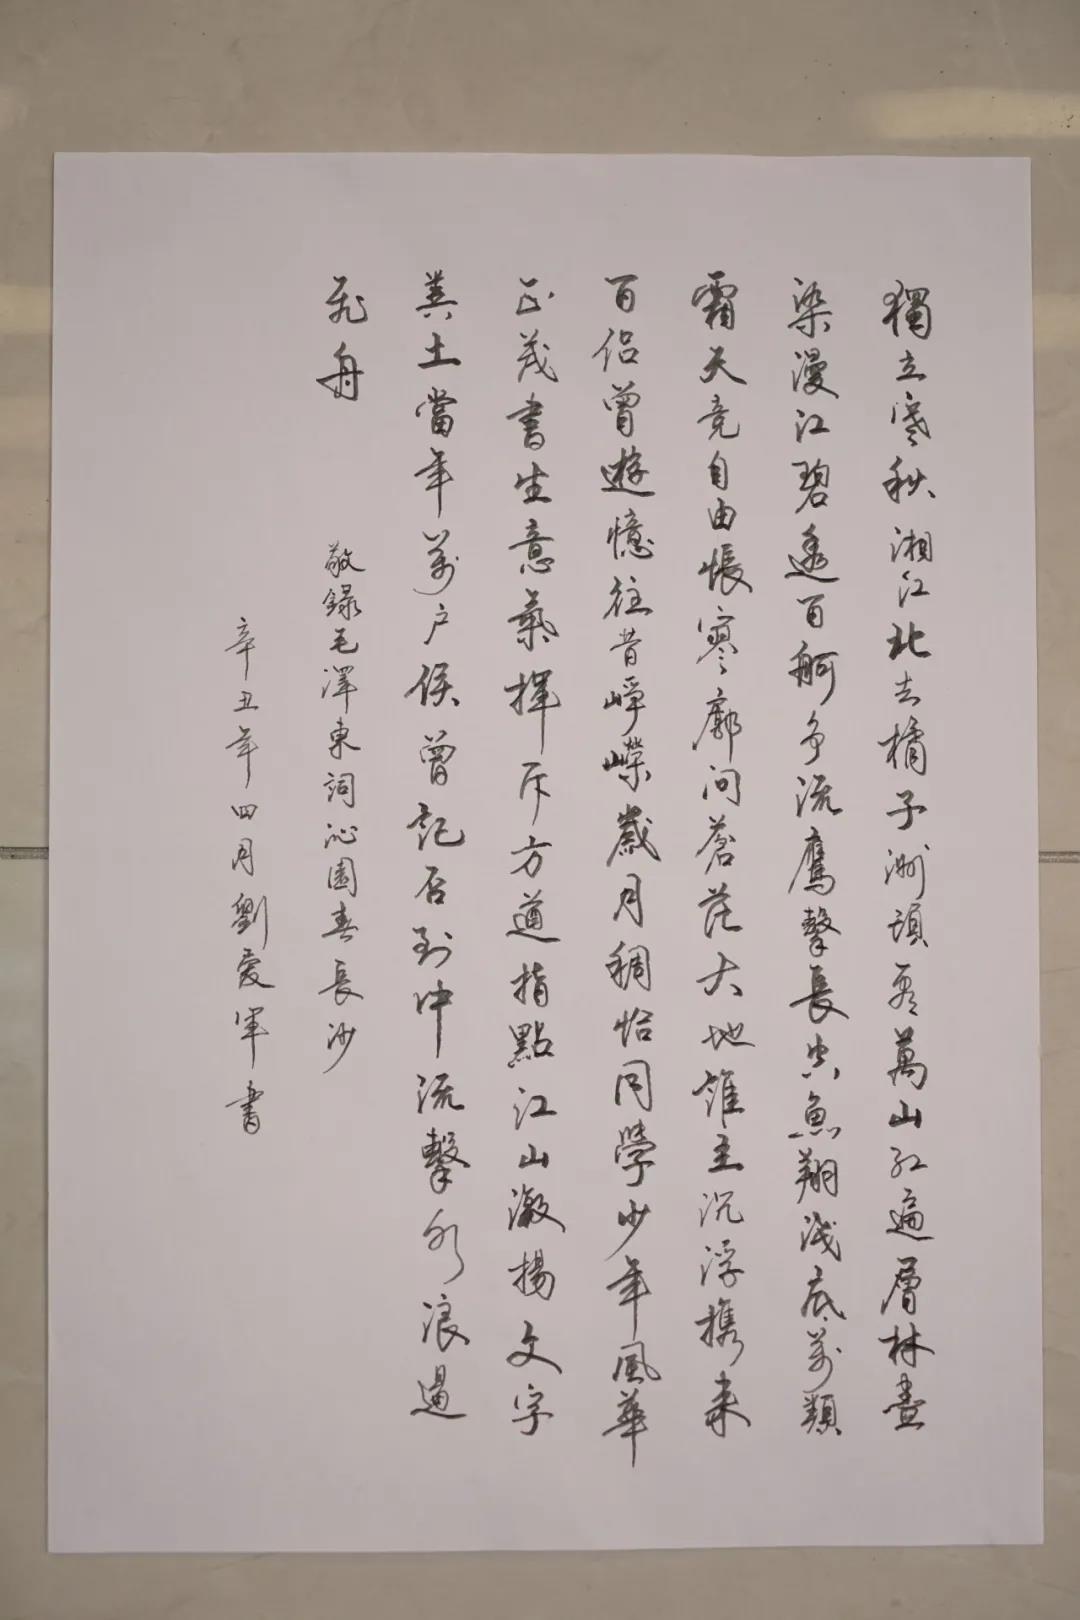 獨立寒秋湘江北去橘子洲頭看萬山紅遍層林盡
染漫江碧透百舸争流鷹擊長空魚翔淺底萬類
霜天竞自由悵寥廓问蒼茫大地誰主沉浮携来
百侣曾遊憶往昔崢嶸歲月稠恰同學少年風華
正茂書生意氣揮斥方遒指點江山激揚文字
糞土當年萬户侯曾記否到中流擊水浪遏
飛舟
敬録毛澤東詞沁園春長沙
辛丑年四月劉愛軍書